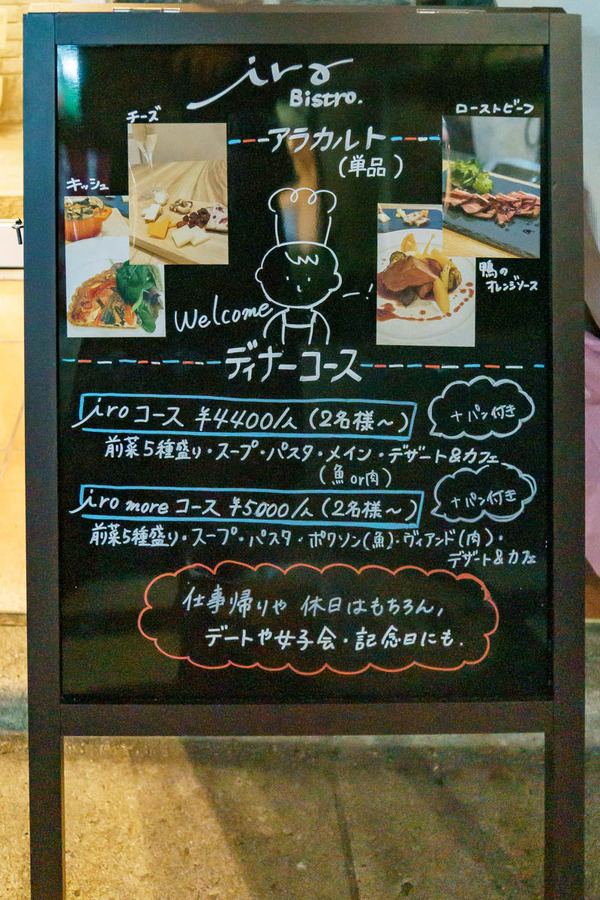 iro
Bistro.
チーズ
ローストビーフ
アラカルト
(単品)
キッシュ
鴨の
オレンジソース
Welcome
ー!
ディナーコース
iro コース ¥4400/人 (2名様~)
+パン付き
前菜5種盛り・スープ・パスタ・メイン・デザート&カフェ
(魚or肉)
iro more コース ¥5000/人 (2名様~)
+パン付き
前菜5種盛り・スープ・パスタ・ポワソン(魚)・ヴィアンド(肉)・
デザート&カフェ
仕事帰りや 休日はもちろん,
デートや女子会・記念日にも.